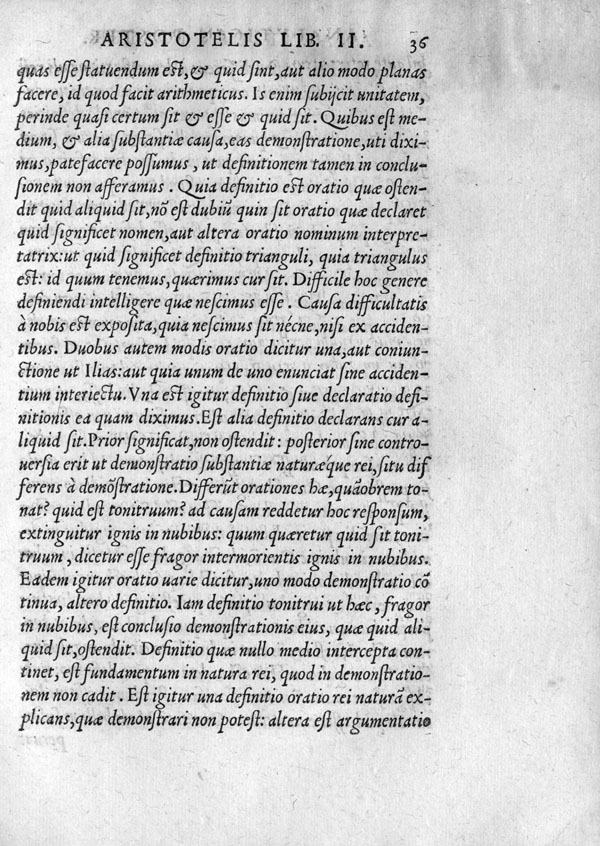 ARISTOTELIS LIB. II. 36
quas esse statuendum est,& quid sint,aut alio modo planas
facere, id quod facit arithmeticus. Is enim subijcit unitatem,
perinde quasi certum sit & esse & quid sit. Quibus est me-
dium, & alia substantiæ causa,eas demonstratione,uti dixi-
mus,patefacere possumus , ut definitionem tamen in conclu-
sionem non afferamus . Quia definitio est oratio quæ osten-
dit quid aliquid sit,nõ est dubiũ quin sit oratio quæ declaret
quid significet nomen,aut altera oratio nominum interpre-
tatrix:ut quid significet definitio trianguli, quia triangulus
est: id quum tenemus,quærimus cur sit. Difficile hoc genere
definiendi intelligere quæ nescimus esse . Causa difficultatis
à nobis est exposita,quia nescimus sit nécne,nisi ex acciden-
tibus. Duobus autem modis oratio dicitur una,aut coniun-
ctione ut Ilias:aut quia unum de uno enunciat sine acciden-
tium interiectu.Vna est igitur definitio siue declaratio defi-
nitionis ea quam diximus.Est alia definitio declarans cur a-
liquid sit.Prior significat,non ostendit : posterior sine contro-
uersia erit ut demonstratio substantiæ naturǽque rei,situ dif
ferens à demõstratione.Differũt orationes hæ,quãobrem to-
nat? quid est tonitruum? ad causam reddetur hoc responsum,
extinguitur ignis in nubibus: quum quæretur quid sit toni-
truum , dicetur esse fragor intermorientis ignis in nubibus.
Eadem igitur oratio uarie dicitur,uno modo demonstratio cõ
tinua, altero definitio. Iam definitio tonitrui ut hæc , fragor
in nubibus, est conclusio demonstrationis eius, quæ quid ali-
quid sit,ostendit. Definitio quæ nullo medio intercepta con-
tinet, est fundamentum in natura rei, quod in demonstratio-
nem non cadit . Est igitur una definitio oratio rei naturã ex-
plicans,quæ demonstrari non potest: altera est argumentatio